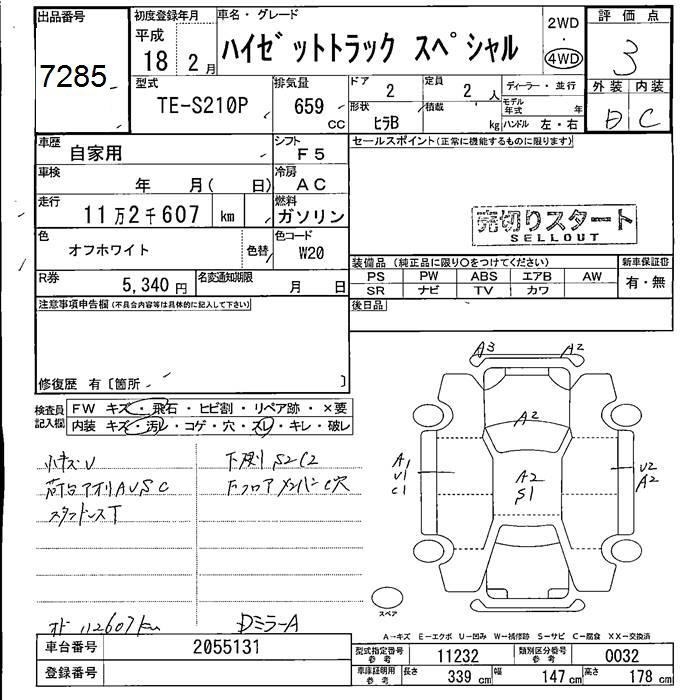 出品番号
7285
初度登録年月
平成
18 2 月
車名・グレード
ハイゼットトラック スペシャル
2WD
・
4WD
評価点
3
外装 内装
D C
型式
TE-S210P
排気量
659
CC
ドア
2
定員
2 人
ディーラー・並行
モデル年式 年
形状
ヒラB
積載
kg
ハンドル 左・右
車歴
自家用
シフト
F5
セールスポイント(正常に機能するものに限ります)
車検
年 月( 日)
冷房
AC
走行
11万2千607 km
燃料
ガソリン
売切りスタート
SELLOUT
色
オフホワイト
色替
色コード
W20
装備品 (純正品に限り○をつけてください)
新車保証書
PS PW ABS エアB AW
SR ナビ TV カワ
有・無
R券
5,340 円
名変通知期限
月 日
後日品
注意事項申告欄(不具合内容等は具体的に記入して下さい)
修復歴 有〔箇所 〕
検査員記入欄
FW キズ・飛石・ヒビ割・リペア跡・×要
内装 キズ・汚レ・コゲ・穴・スレ・キレ・破レ
小キズU
荷台アオリAUSC
スタッドレスT
オド 112607km
下廻りS2C2
FフロアメンバーC穴
DミラーA
A3
A2
A2
A1
U1
C1
A2
S1
U2
A2
スペア
A-キズ E-エクボ U-凹み W-補修跡 S-サビ C-腐食 XX-交換済
車台番号
2055131
登録番号
型式指定番号
参考
11232
類別区分番号
参考
0032
車庫証明用
参考
長さ 339 cm 幅 147 cm 高さ 178 cm